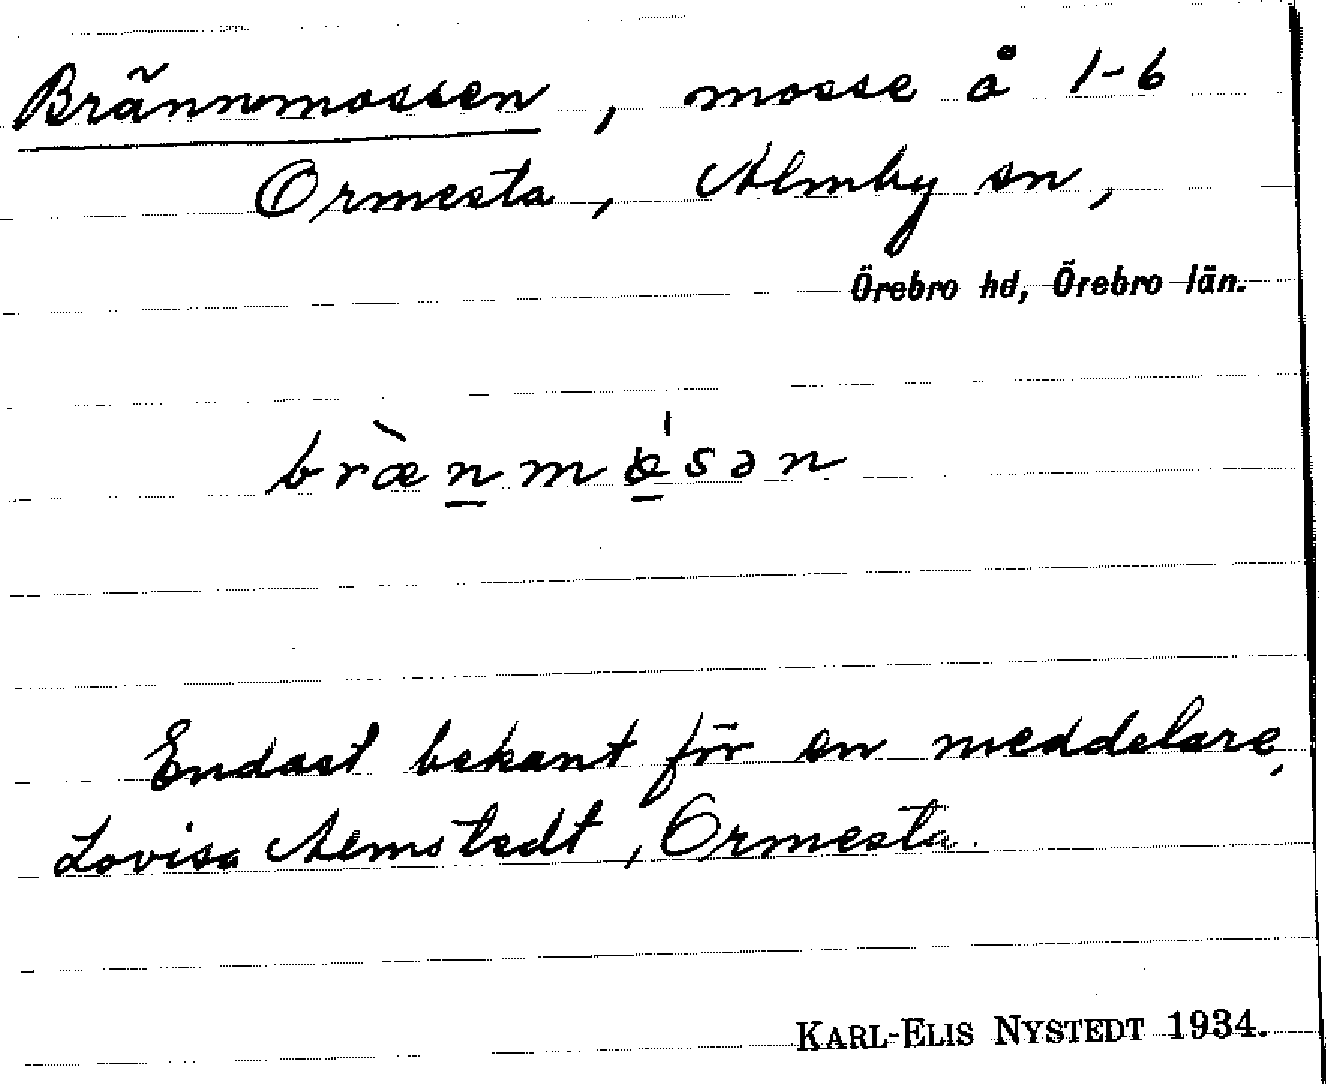 Brännmossen, mosse å 1-6
Ormesta, Almby sn,
Örebro hd, Örebro län.
bræ̀n̲mɷ̲́sən
Endast bekant för en meddelare,
Lovisa Almstedt, Ormesta.
KARL-ELIS NYSTEDT 1934.